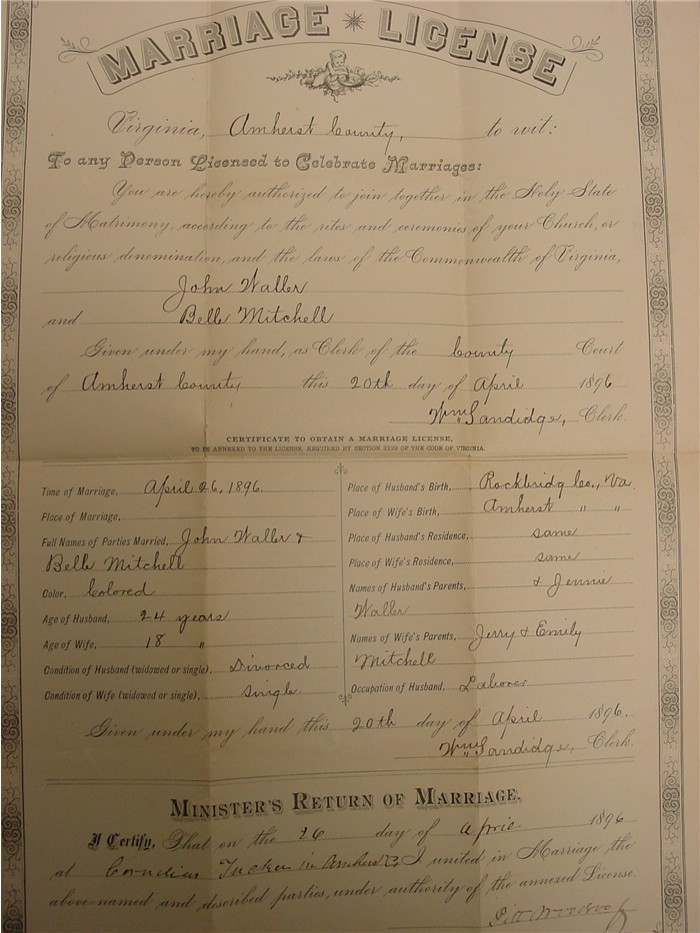 MARRIAGE LICENSE
Virginia, Amherst County, to wit:
To any Person Licensed to Celebrate Marriages:
You are hereby authorized to join together in the Holy State
of Matrimony, according to the rites and ceremonies of your Church, or
religious denomination, and the laws of the Commonwealth of Virginia,
John Waller
and Belle Mitchell
Given under my hand, as Clerk of the County Court
of Amherst County this 20th day of April 1896
Wm Sandidge, Clerk.
CERTIFICATE TO OBTAIN A MARRIAGE LICENSE,
TO BE ANNEXED TO THE LICENSE, REQUIRED BY SECTION 2229 OF THE CODE OF VIRGINIA.
Time of Marriage, April 26, 1896.
Place of Marriage,
Full Names of Parties Married, John Waller &
Belle Mitchell
Color, Colored
Age of Husband, 24 years
Age of Wife, 18 "
Condition of Husband (widowed or single), Divorced
Condition of Wife (widowed or single), single
Place of Husband's Birth, Rockbridg Co., Va
Place of Wife's Birth, Amherst " "
Place of Husband's Residence, same
Place of Wife's Residence, same
Names of Husband's Parents, & Jennie
Waller
Names of Wife's Parents, Jerry & Emily
Mitchell
Occupation of Husband, Laborer
Given under my hand this 20th day of April 1896.
Wm Sandidge, Clerk.
MINISTER'S RETURN OF MARRIAGE.
I Certify, That on the 26 day of April 1896
at Cornelius Tucker in Amherst I united in Marriage the
above-named and described parties, under authority of the annexed License.